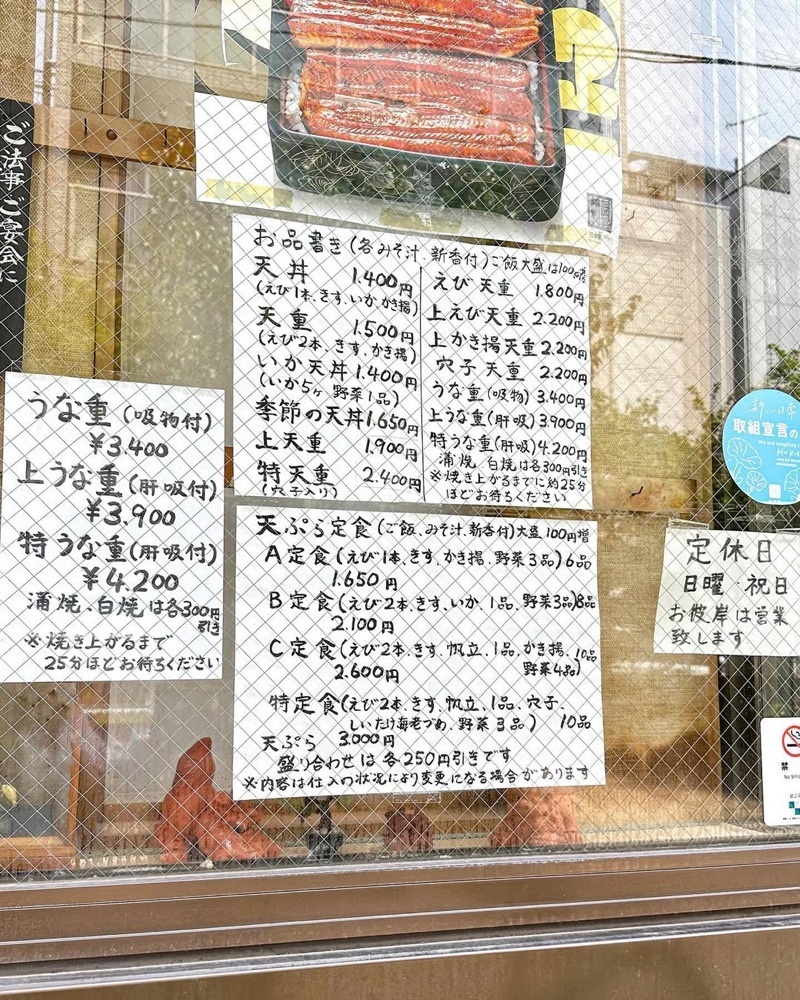 ご法事ご宴会に
お品書き(各みそ汁、新香付)ご飯大盛は100円増
天丼 1.400円
(えび1本、きす、いか、かき揚)
天重 1.500円
(えび2本、きす、かき揚)
いか天丼 1.400円
(いか5ヶ 野菜1品)
季節の天丼 1.650円
上天重 1.900円
特天重 2.400円
(穴子入り)
えび天重 1.800円
上えび天重 2.200円
上かき揚天重 2.200円
穴子天重 2.200円
うな重(吸物) 3.400円
上うな重(肝吸) 3.900円
特うな重(肝吸) 4.200円
蒲焼、白焼は各300円引き
※焼き上がるまでに約25分
ほどお待ちください
うな重(吸物付)
¥3.400
上うな重(肝吸付)
¥3.900
特うな重(肝吸付)
¥4.200
蒲焼、白焼は各300円
引き
※焼き上がるまで
25分ほどお待ちください
天ぷら定食(ご飯、みそ汁、新香付)大盛100円増
A定食(えび1本、きす、かき揚、野菜3品)6品
1.650円
B定食(えび2本、きす、いか、1品、野菜3品)8品
2.100円
C定食(えび2本、きす、帆立、1品、かき揚、10品
野菜4品)
2.600円
特定食(えび2本、きす、帆立、1品、穴子、
しいたけ海老づめ、野菜3品) 10品
天ぷら 3.000円
盛り合わせは各250円引きです
※内容は仕入の状況により変更になる場合があります
新しい日常
取組宣言の
定休日
日曜・祝日
お彼岸は営業
致します
禁